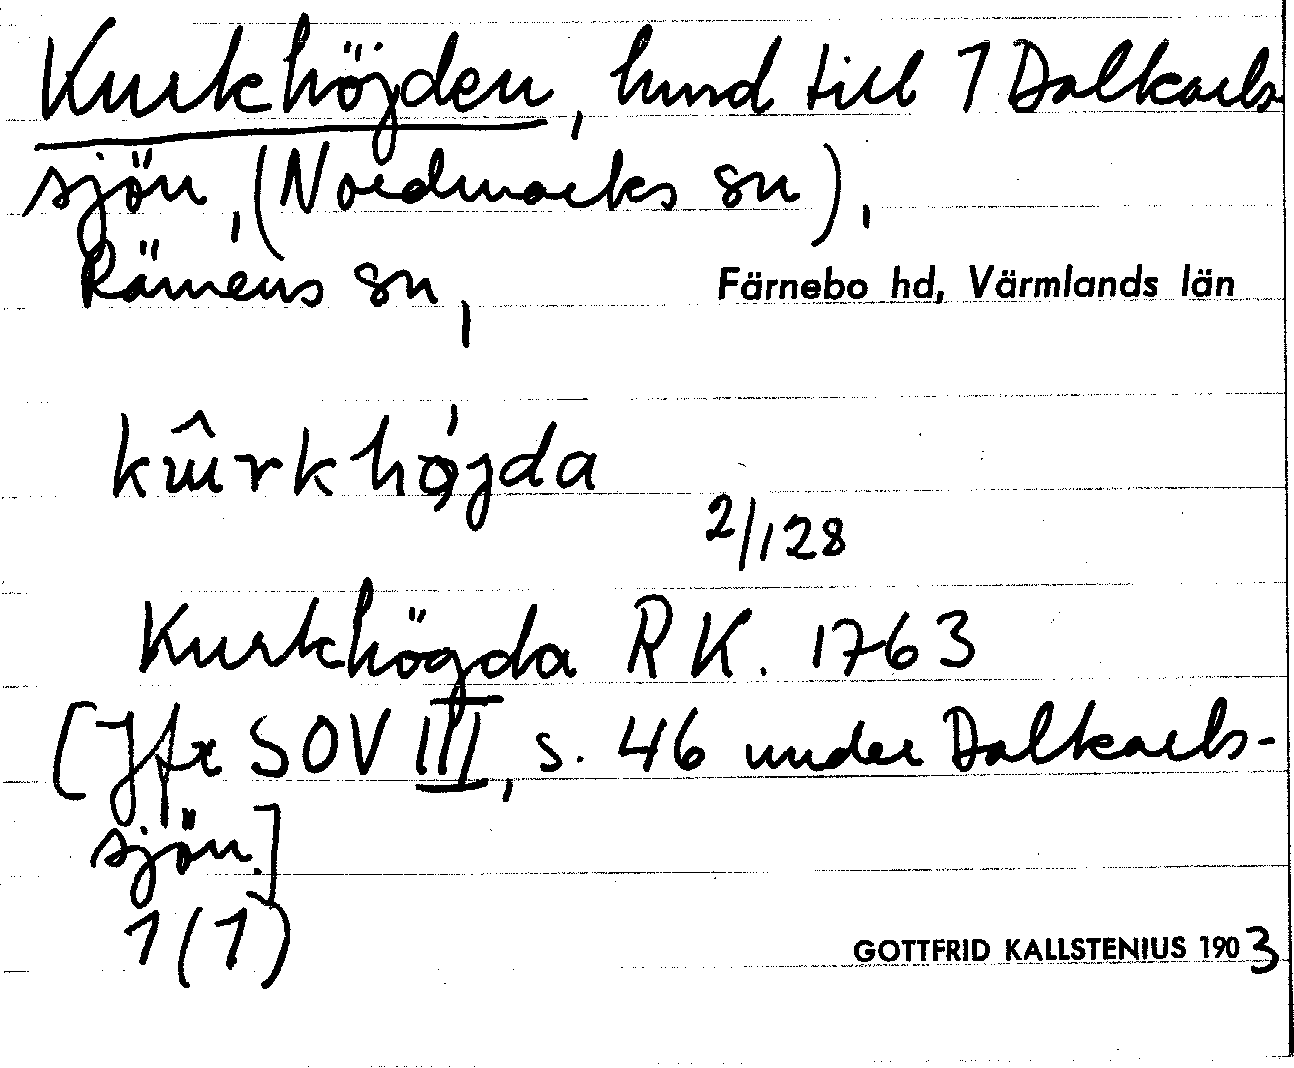 Kurkhöjden, hmd till 1 Dalkarls
sjön, (Nordmarks sn),
Rämens sn, Färnebo hd, Värmlands län
kɯ̂rkhǫ́jda
2/128
Kurkhögda RK. 1763
[Jfr SOV III, s. 46 under Dalkarls-
sjön.]
1(1)
GOTTFRID KALLSTENIUS 1903